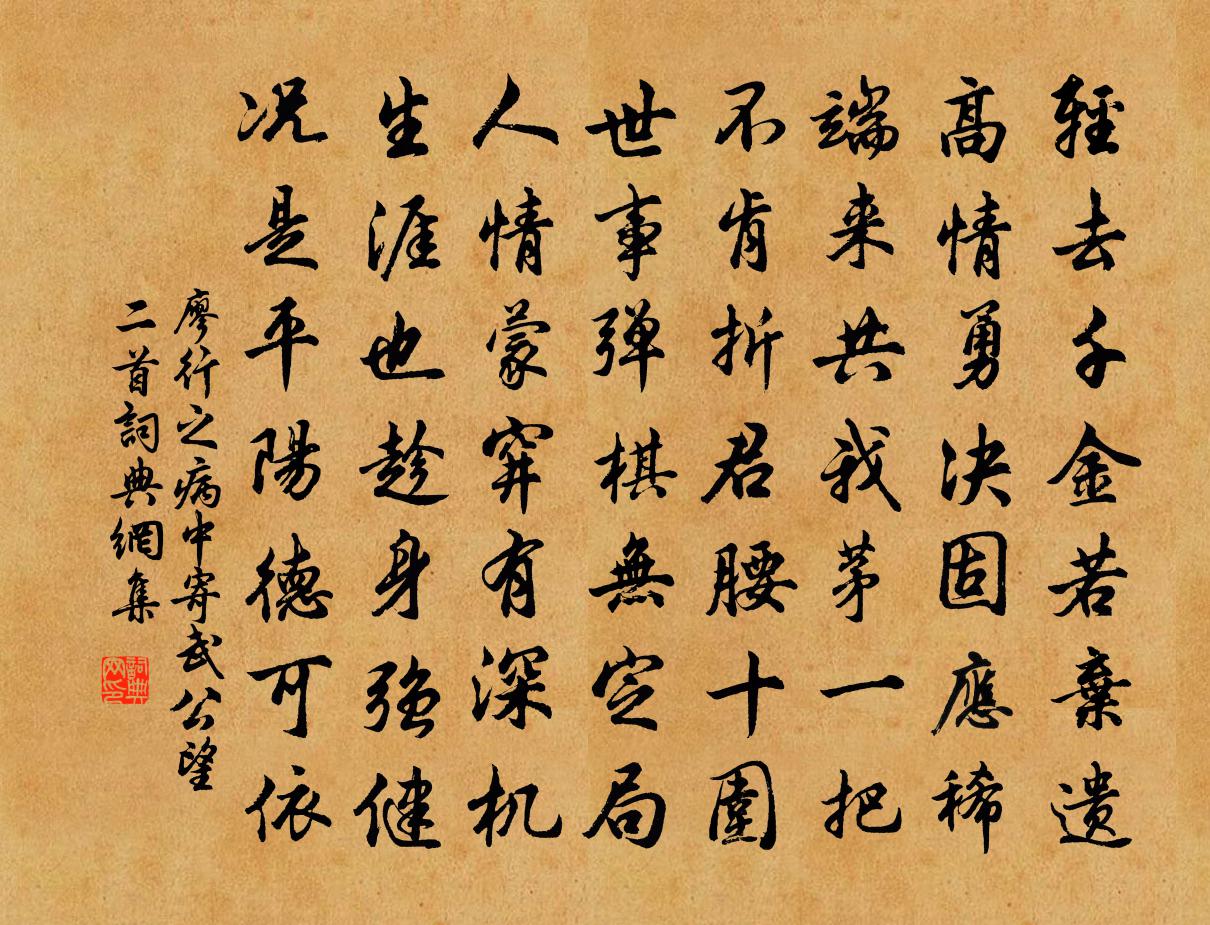 輕去千金若棄遺
高情勇决固應稀
端来共我茅一把
不肯折君腰十圍
世事弹棋無定局
人情蒙穽有深机
生涯也趁身强健
况是平陽德可依
廖行之病中寄武公望
二首詞典網集
詞典网印